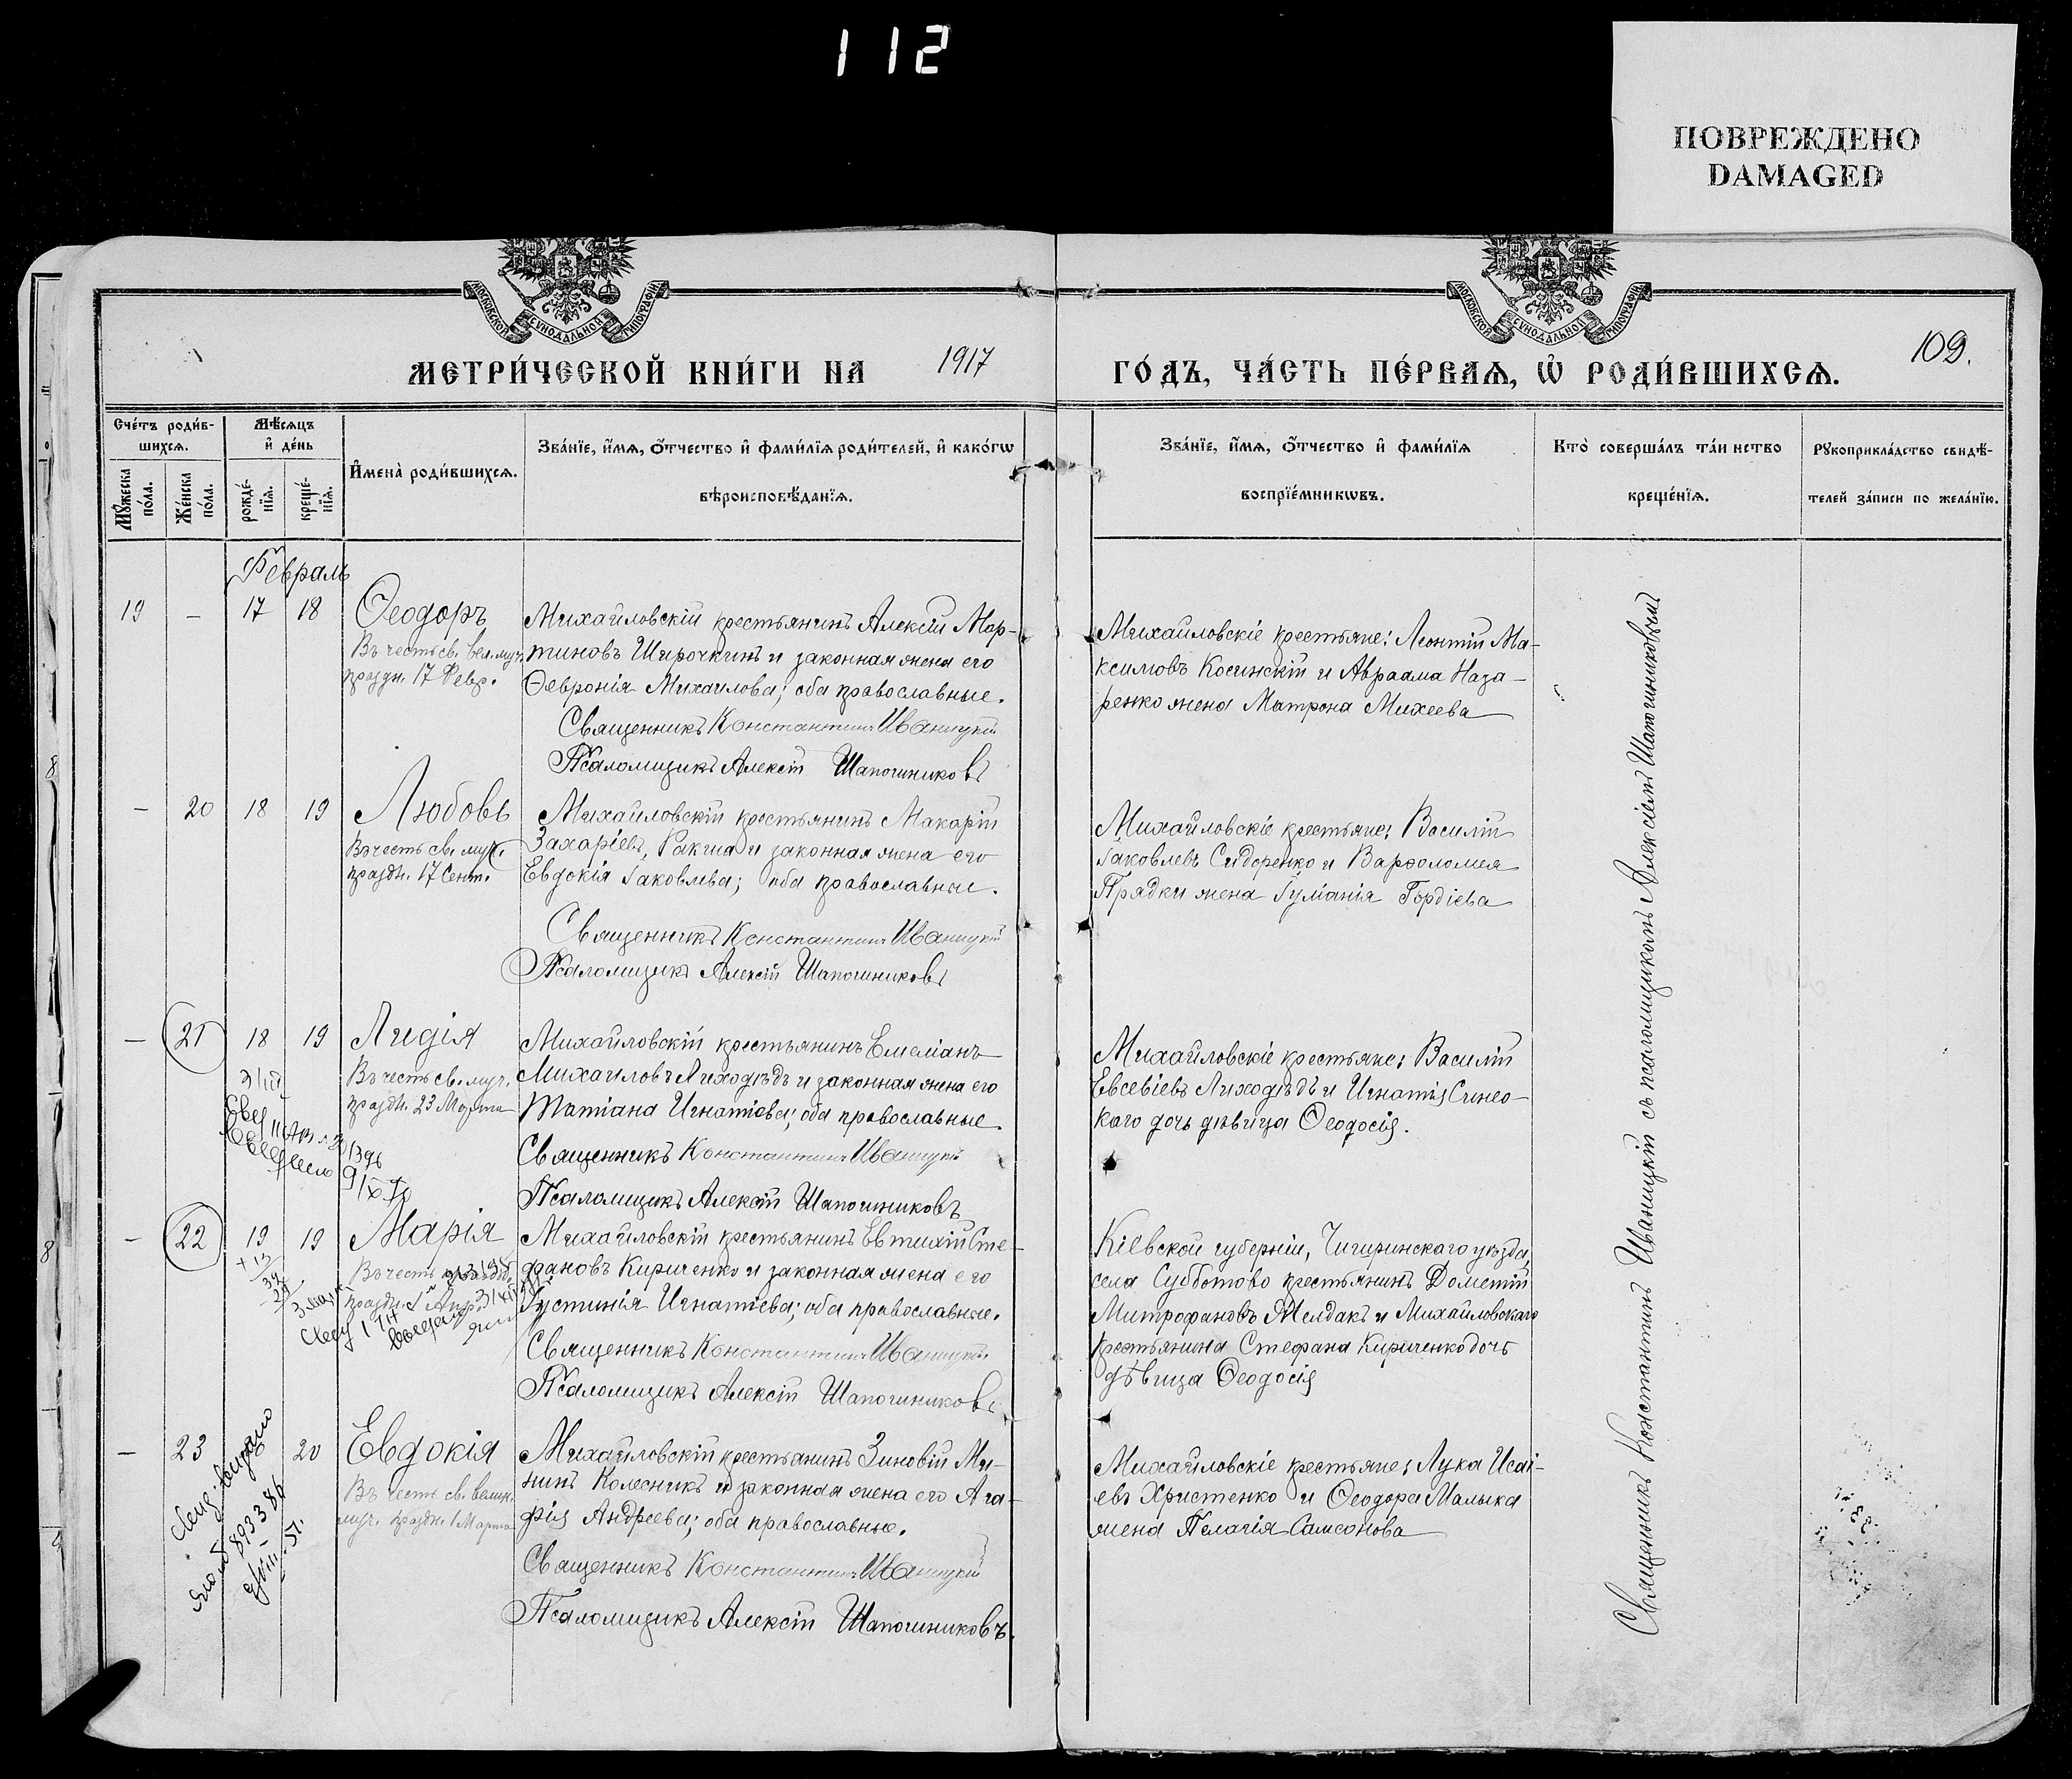 112
ПОВРЕЖДЕНО
DAMAGED
МОСКОВСКОЙ СѴНОДАЛЬНОЙ ТИПОГРАФІИ
МОСКОВСКОЙ СѴНОДАЛЬНОЙ ТИПОГРАФІИ
МЕТРИ́ЧЕСКОЙ КНИ́ГИ НА 1917 ГО́ДЪ, ЧА́СТЬ ПЕ́РВАѦ, Ѡ҆ РОДИ́ВШИХСѦ.
109.
Сче́тъ роди́в-
шихсѧ.
Мꙋ́жеска по́ла.
Же́нска по́ла.
Мѣ́сѧцъ
и҆ де́нь
рожде́-
нїѧ.
креще́-
нїѧ.
И҆мена̀ роди́вшихсѧ.
Зва́нїе, и҆́мѧ, ѻ҆́тчество и҆ фами́лїѧ роди́телей, и҆ како́гѡ
вѣроисповѣ́данїѧ.
Зва́нїе, и҆́мѧ, ѻ҆́тчество и҆ фами́лїѧ
воспрїе́мникѡвъ.
Кто̀ соверша́лъ та́инство
креще́нїѧ.
Рꙋкоприкла́дство свидѣ́-
телей за́писи по жела́нїю.
Февраль
19 — 17 18 Ѳеодоръ
Въ честь св. вел. муч.
праздн. 17 Февр.
Михайловскій крестьянинъ Алексій Мар-
тиновъ Широчкинъ и законная жена его
Ѳевронія Михаилова; оба православные.
Священникъ Константинъ Иваницкій
Псаломщикъ Алексій Шапошниковъ
Михайловскіе крестьяне: Леонтій Ма-
ксимовъ Косинскій и Авраама Наза-
ренко жена Матрона Михеева
— 20 18 19 Любовь
Въ честь св. муч.
праздн. 17 Сент.
Михайловскій крестьянинъ Макарій
Захаріевъ Ракша и законная жена его
Евдокія Іаковлева; оба православные.
Священникъ Константинъ Иваницкій
Псаломщикъ Алексій Шапошниковъ
Михайловскіе крестьяне: Василій
Іаковлевъ Сидоренко и Варѳоломея
Прядки жена Іуліанія Гордіева
— 21 18 19 Лидія
Въ честь св. муч.
праздн. 23 Марта
Михайловскій крестьянинъ Емеліанъ
Михаиловъ Лиходѣдъ и законная жена его
Татіана Игнатіева; оба православные.
Священникъ Константинъ Иваницкій
Псаломщикъ Алексій Шапошниковъ
Михайловскіе крестьяне: Василій
Евсевіевъ Лиходѣдъ и Игнатія Синео-
каго дочь дѣвица Ѳеодосія.
— 22 19 19 Марія
Въ честь
праздн. 1 Апр.
Михайловскій крестьянинъ Евтихій Сте-
фановъ Кириченко и законная жена его
Іустинія Игнатіева; оба православные.
Священникъ Константинъ Иваницкій
Псаломщикъ Алексій Шапошниковъ
Кіевской губерніи, Чигиринскаго уѣзда,
села Субботово крестьянинъ Дометій
Митрофановъ Желдакъ и Михайловскаго
крестьянина Стефана Кириченко дочь
дѣвица Ѳеодосія
— 23 20 Евдокія
Въ честь св. велик.
муч. праздн. 1 Марта
Михайловскій крестьянинъ Зиновій Ми-
нинъ Колесникъ и законная жена его Ага-
фія Андреева; оба православные.
Священникъ Константинъ Иваницкій
Псаломщикъ Алексій Шапошниковъ.
Михайловскіе крестьяне: Лука Исаі-
евъ Христенко и Ѳеодора Малыка
жена Пелагія Самсонова
Священникъ Константинъ Иваницкій съ псаломщикомъ Алексіемъ Шапошниковымъ